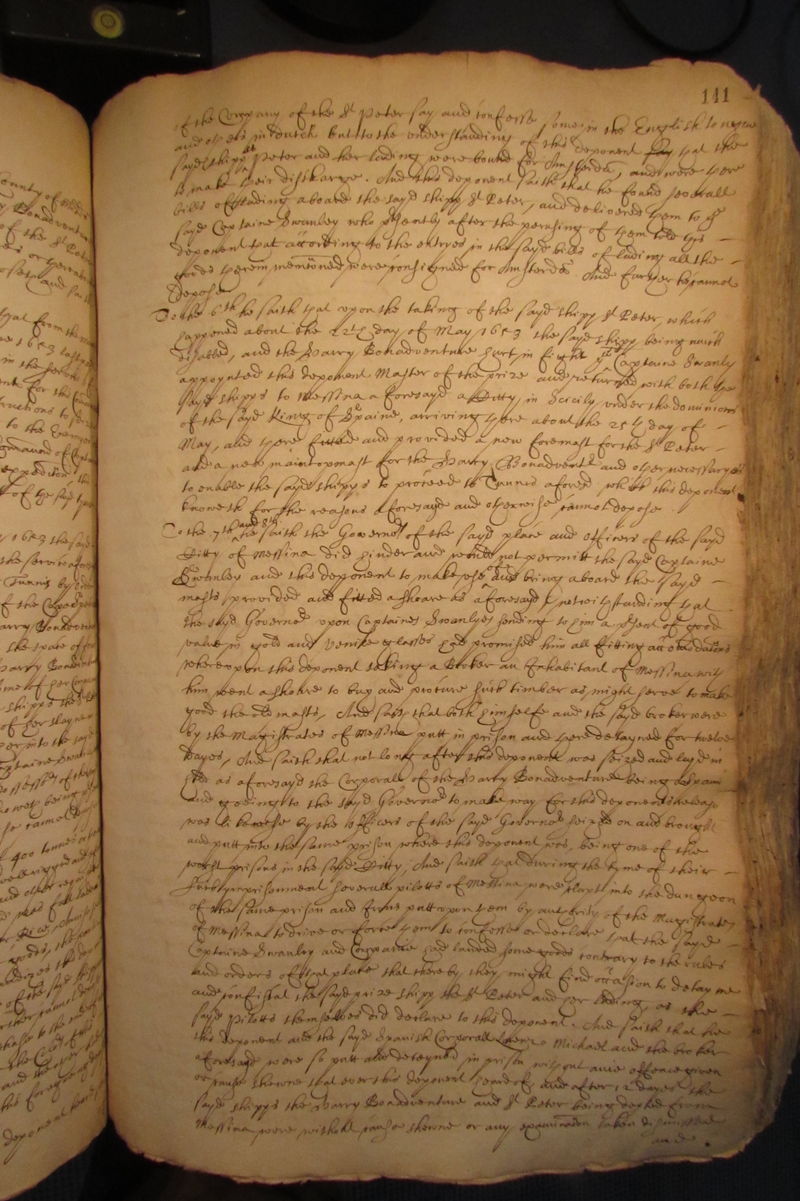 111
of the Company of the St Peter say and confesse some in the English tongue
and others in dutch but to the understanding of this deponent that the
sayd shipp St Peter and her lading were bound for Amsterdam, and were there
to make their discharge. And this deponent saith that he found severall
bills of lading aboard the sayd shipp St Peter, and delivered them to the
sayd Captaine Swanley who presently after the perusing of them told this
deponent that according to the entries in the sayd bills of lading all the
goods therein mentioned were consigned for Amsterdam And further he cannot
depose
To the 6th he saith that upon the taking of the sayd shipp St Peter, which
happened about the day of May 1653 the sayd shipp being much
disabled, and the Harry Bonadventure hurt in fight the Captaine Swanly
appoynted this deponent Master of the prize and returned with both the
sayd shipps to Messina aforesayd a Citty in Scicily under the dominions
of the sayd King of Spaine, arriving there about the 25th day of
May, and there fitted and provided a new foremast for the St Peter
and a new maintopmast for the Harry Bonadventure and other necessaryes
to enable the sayd shipps to proceede to Tunnis aforesd which this deponent
knoweth for the reasons aforesayd and otherwise cannot depose
To the 7th and 8th he saith the Governor of the sayd place and officers of the sayd
Citty of Messina did hinder and would not permitt the sayd Captaine
Swanley and this deponent to make use of and bring aboard the sayd
masts provided and fitted ashoare as aforesayd notwithstanding that
the sayd Governor upon Captaine Swanlyes sending to him a present of good
value in gold and Venice glasses had promised him all fitting accomodations
whereupon this deponent taking a Broker an Inhabitant of Messina with
him went ashoare to buy and procure such timber as might serve to make
good the sd masts, And saith that both himselfe and the sayd broker were
by the Magistrates of Messina putt in prison and there detayned for twelve
dayes, And saith that not long after this deponent was seized and layd in
as aforesayd the Corporall of the Harry Bonadventure being a Spaniard
and goeing to the sayd Governor to make way for this deponents release
was likewise by the officers of the sayd Governor seized on and brought
and putt into the same prison where this deponent was, being one of the
prisons in the sayd Citty, And saith that during the tyme of their
such imprisonment severall pilotts of Messina were clapt into the dungeon
of the same prison and Irons putt upon them by authority of the Magistrates
of Messina to drive or force them to confesse or declare that the sayd
Captaine Swanley and Companie had landed some goods contrary to the rules
and orders of that place that thereby they might find occasion to detayne
and confiscat the sayd prize shipp the St Peter and her lading, as the
sayd Pilotts themselves did declare to this deponent. And saith that he
this deponent and the sayd Spanish Corporall Michael and the broker
aforesayd were so putt and deteyned in prison without anie offence given
or cause shewne that ever this deponent heard of, and after 12 dayes the
sayd shipps the Harry Boadventure and St Peter being departed from
Messina were without cause shewne or any examination taken dismissed
and